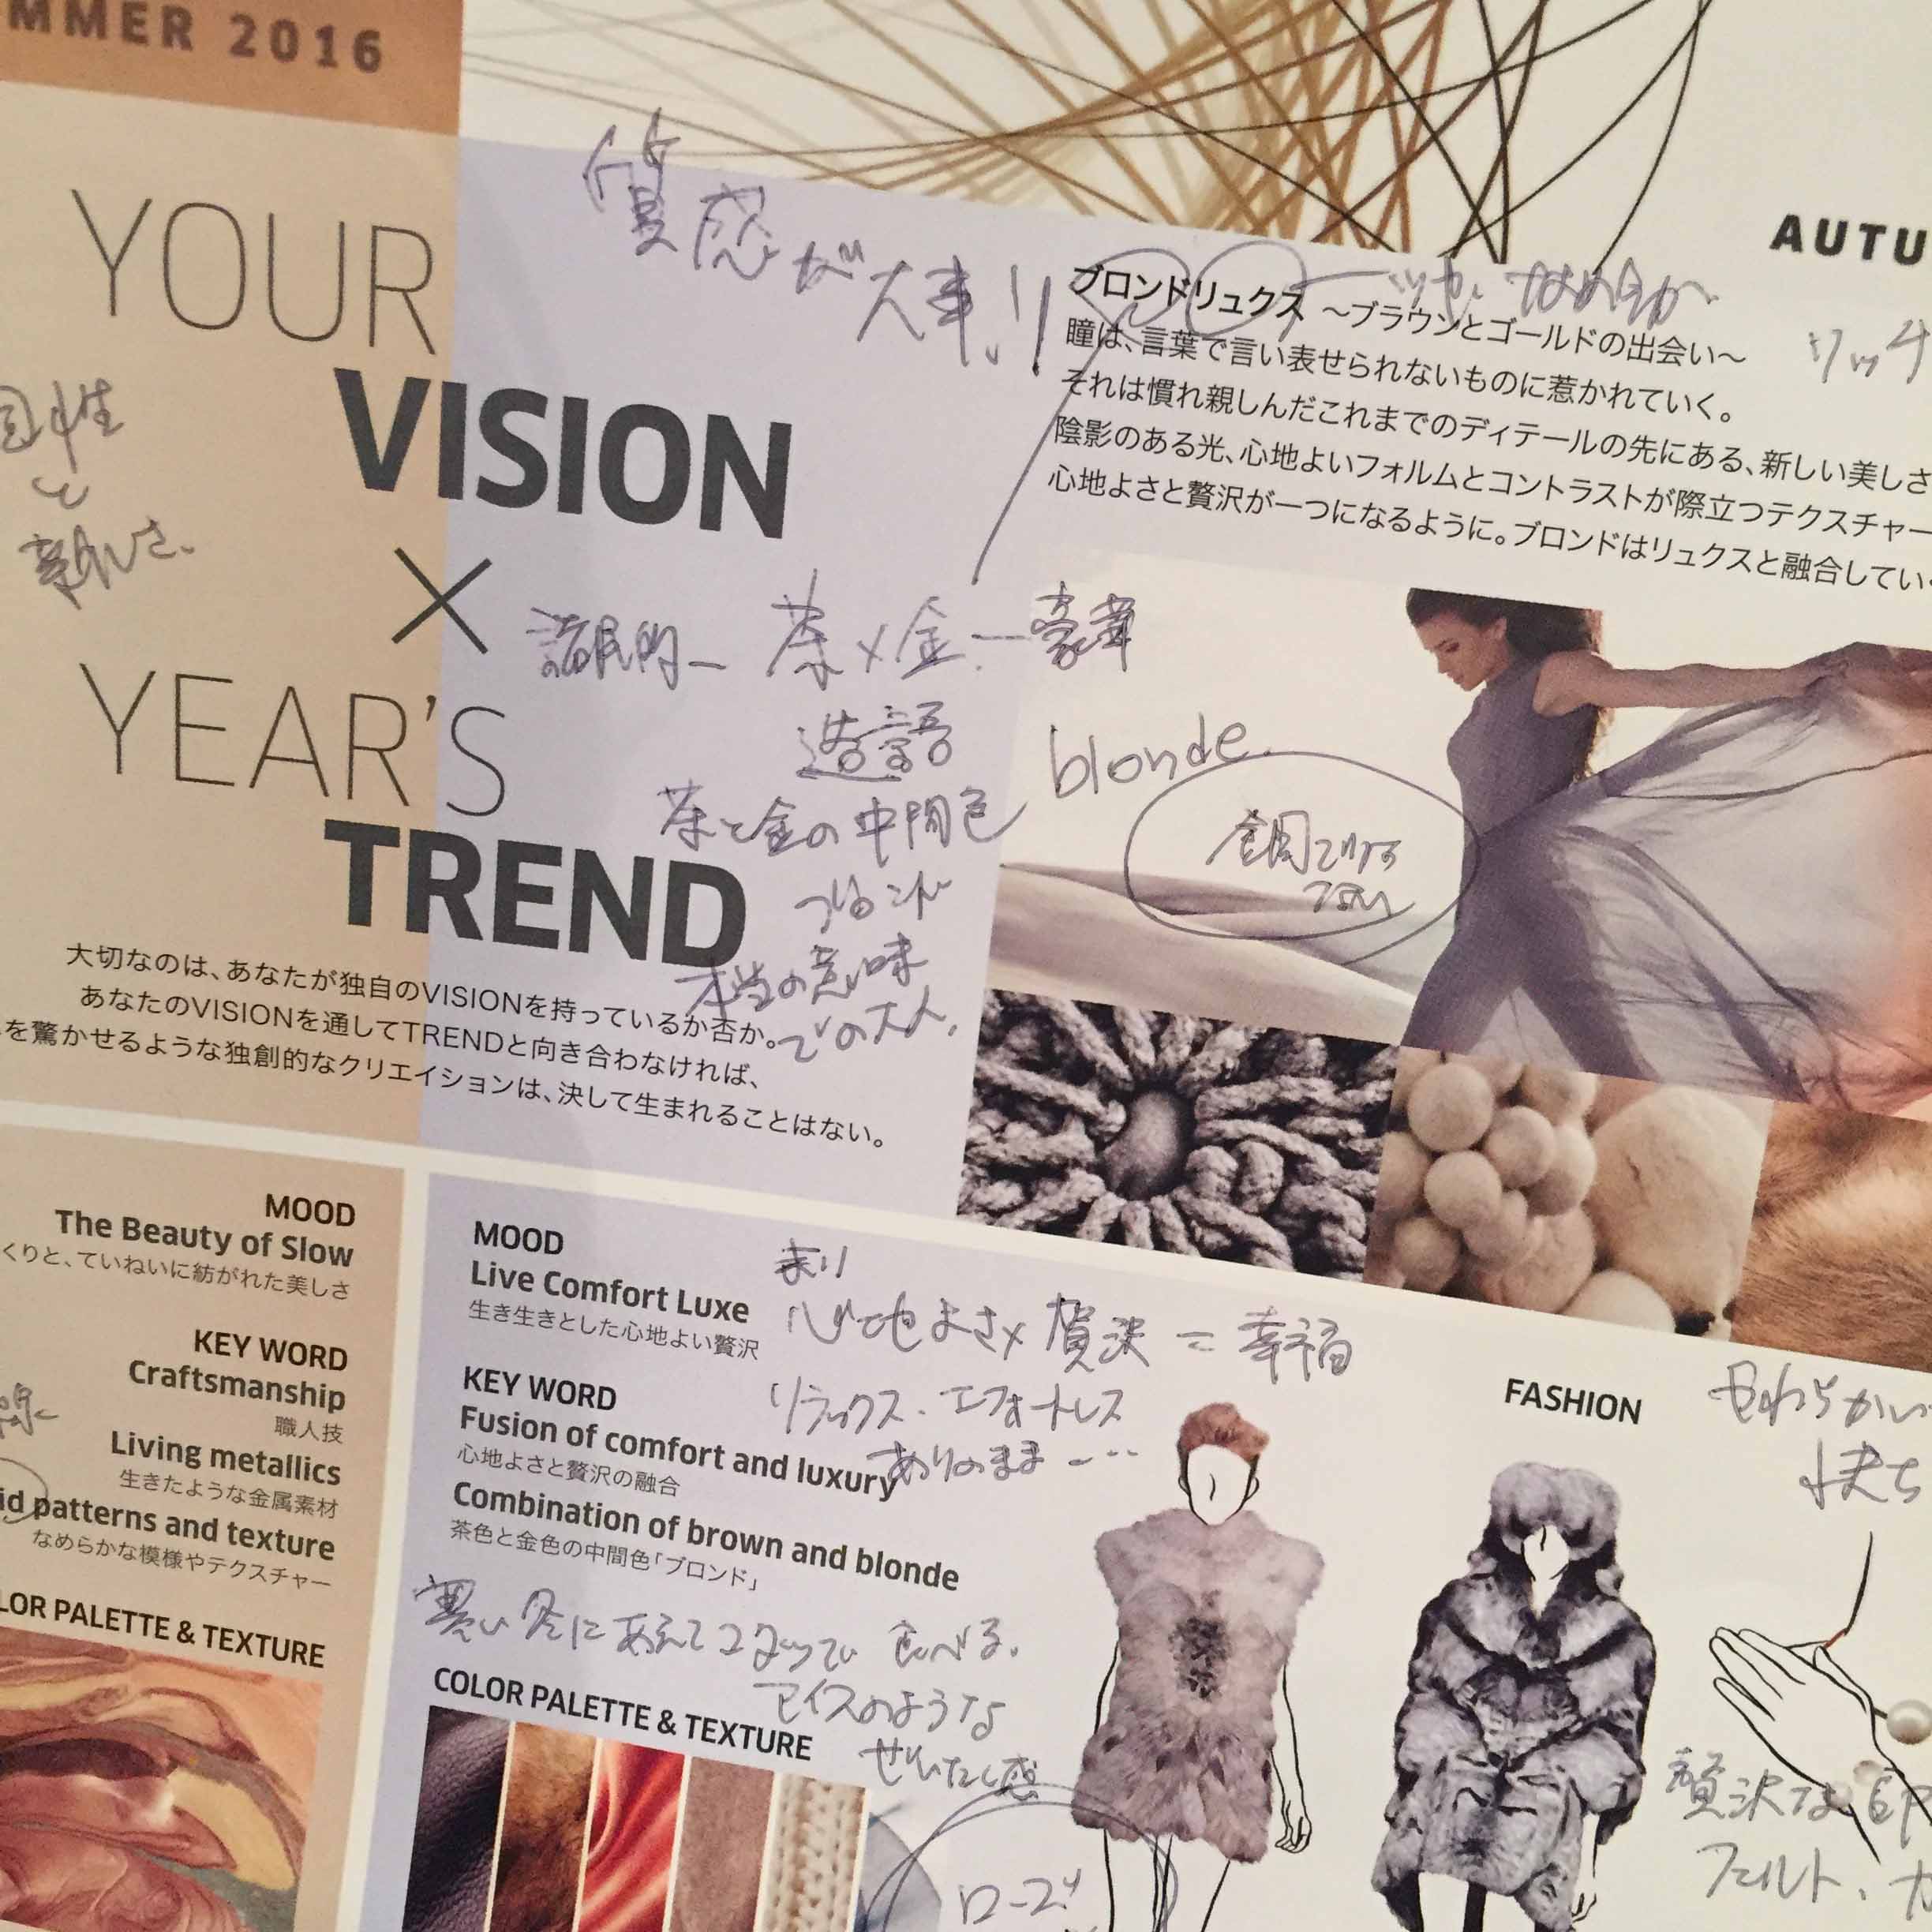 MMER 2016
YOUR
VISION
×
YEAR'S
TREND
大切なのは、あなたが独自のVISIONを持っているか否か。
あなたのVISIONを通してTRENDと向き合わなければ、
を驚かせるような独創的なクリエイションは、決して生まれることはない。
質感が大事!!
と
茶×金 豪華
造語
茶と金の中間色
blonde
本当の意味
での大人
AUTU
リッチ
ブロンドリュクス 〜ブラウンとゴールドの出会い〜
瞳は、言葉で言い表せられないものに惹かれていく。
それは慣れ親しんだこれまでのディテールの先にある、新しい美しさ
陰影のある光、心地よいフォルムとコントラストが際立つテクスチャー
心地よさと贅沢が一つになるように。ブロンドはリュクスと融合してい
MOOD
The Beauty of Slow
くりと、ていねいに紡がれた美しさ
KEY WORD
Craftsmanship
職人技
Living metallics
生きたような金属素材
id patterns and texture
なめらかな模様やテクスチャー
LOR PALETTE & TEXTURE
MOOD
Live Comfort Luxe
生き生きとした心地よい贅沢
心地よさ× 贅沢 = 幸福
リラックス・エフォートレス
ありのまま
KEY WORD
Fusion of comfort and luxury
心地よさと贅沢の融合
Combination of brown and blonde
茶色と金色の中間色「ブロンド」
寒い冬にあえてコタツで 食べる。
アイスのような
ぜいたく感
COLOR PALETTE & TEXTURE
FASHION
やわらかい
贅沢な
フェルト、